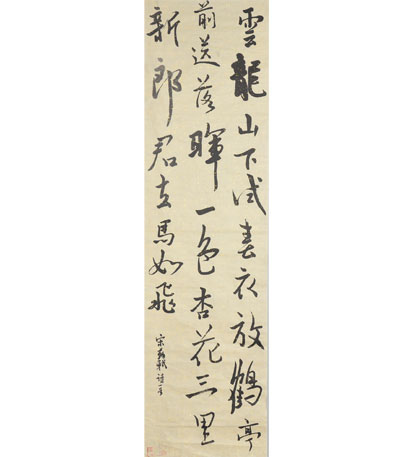 雲龍山下试春衣放鶴亭
前送落暉一色杏花三里
新郎君去馬如飛
宋蘇軾詩一